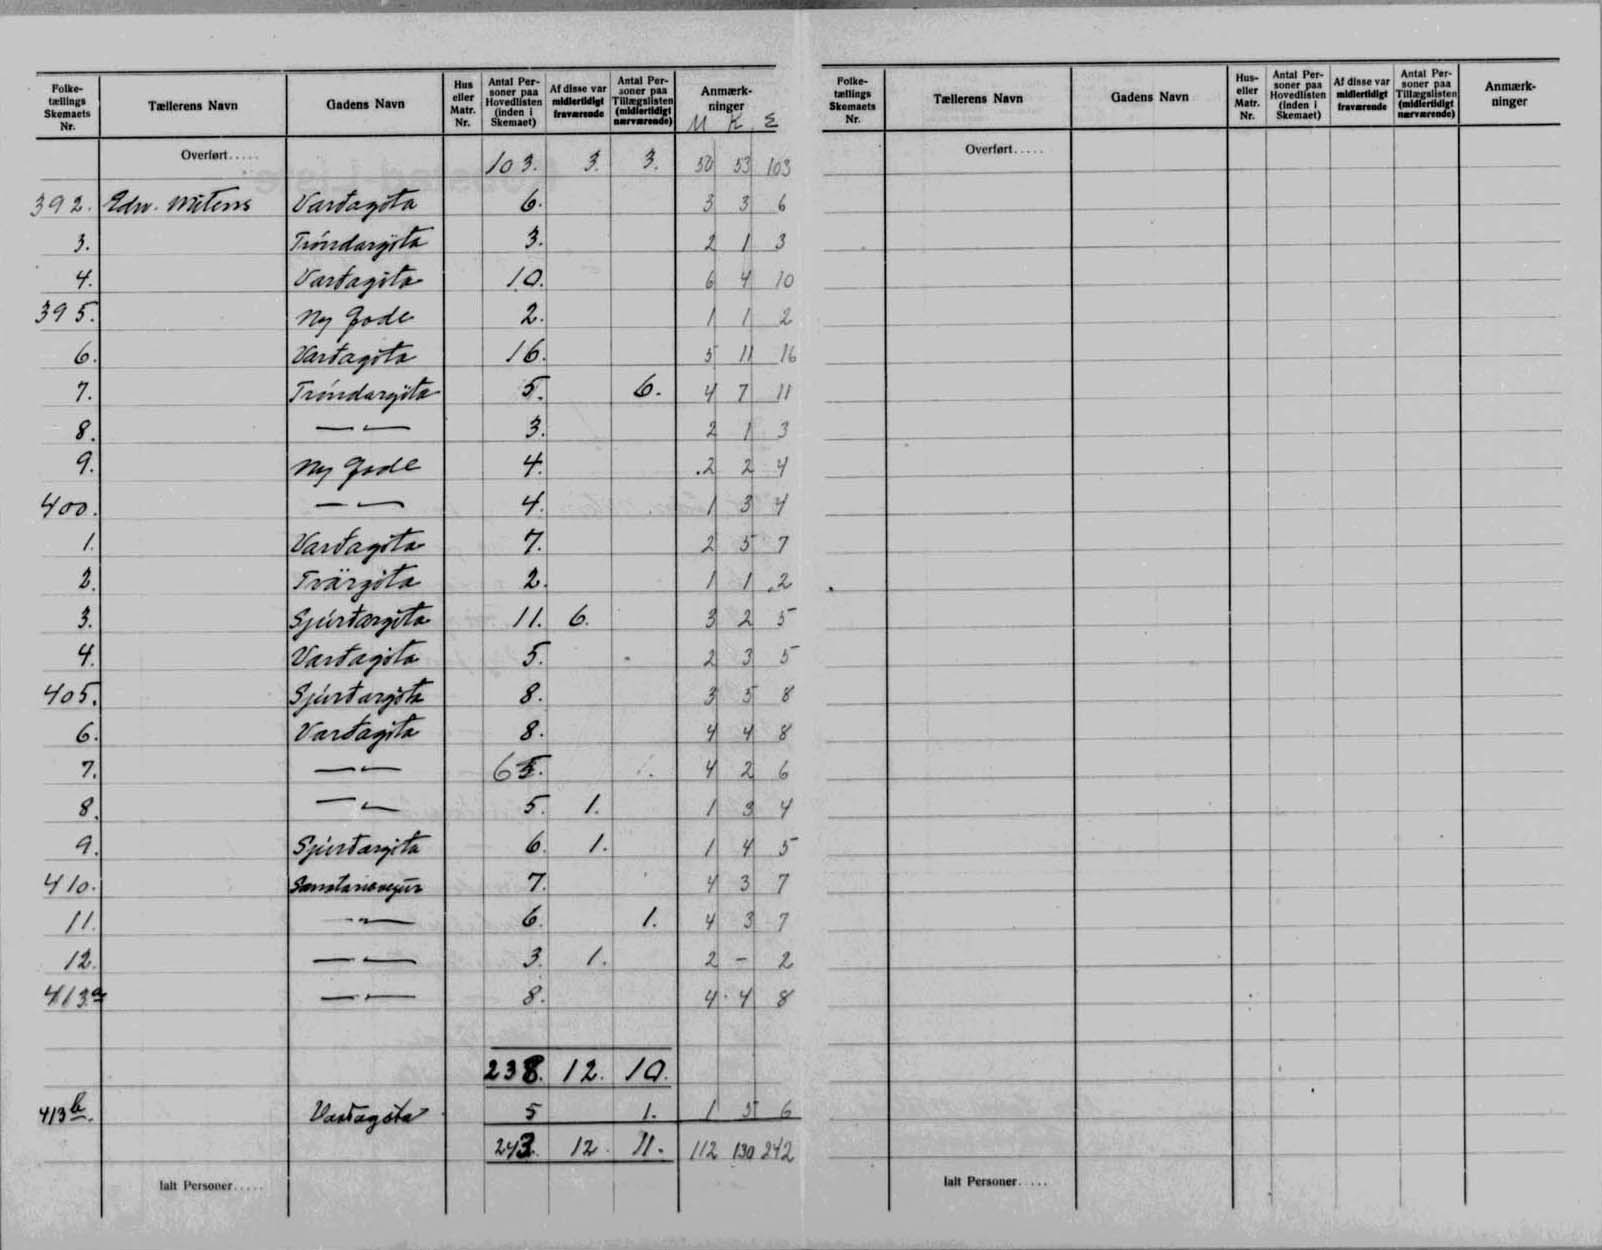 Folke-tællings Skemaets Nr. | Tællerens Navn | Gadens Navn | Hus eller Matr. Nr. | Antal Per-soner paa Hovedlisten (inden i Skemaet) | Af disse var midlertidigt fraværende | Antal Per-soner paa Tillægslisten (midlertidigt nærværende) | Anmærk-ninger M K Σ
Overført..... 103. 3. 3. 50 53 103
392. Edw. Mitens Varðagøta 6. 3 3 6
3. Tróndargøta 3. 2 1 3
4. Varðagøta 10. 6 4 10
395. Ny Gade 2. 1 1 2
6. Varðagøta 16. 5 11 16
7. Tróndargøta 5. 6. 4 7 11
8. — — 3. 2 1 3
9. Ny Gade 4. 2 2 4
400. — — 4. 1 3 4
1. Varðagøta 7. 2 5 7
2. Tvärgøta 2. 1 1 2
3. Sjúrðargøta 11. 6. 3 2 5
4. Varðagøta 5. 2 3 5
405. Sjúrðargøta 8. 3 5 8
6. Varðagøta 8. 4 4 8
7. — — 6 4 2 6
8. — — 5. 1. 1 3 4
9. Sjúrðargøta 6. 1. 1 4 5
410. 7. 4 3 7
11. — — 6. 1. 4 3 7
12. — — 3. 1. 2 - 2
413a — — 8. 4 4 8
238. 12. 10.
413b. Varðagøta 5 1. 1 5 6
243. 12. 11. 112 130 242
Ialt Personer.....
Folke-tællings Skemaets Nr. | Tællerens Navn | Gadens Navn | Hus-eller Matr. Nr. | Antal Per-soner paa Hovedlisten (inden i Skemaet) | Af disse var midlertidigt fraværende | Antal Per-soner paa Tillægslisten (midlertidigt nærværende) | Anmærk-ninger
Overført.....
Ialt Personer.....